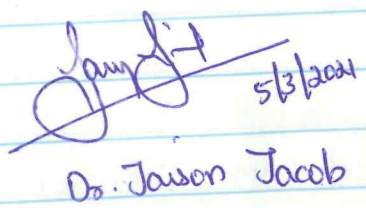 5/3/2021
Dr. Jaison Jacob